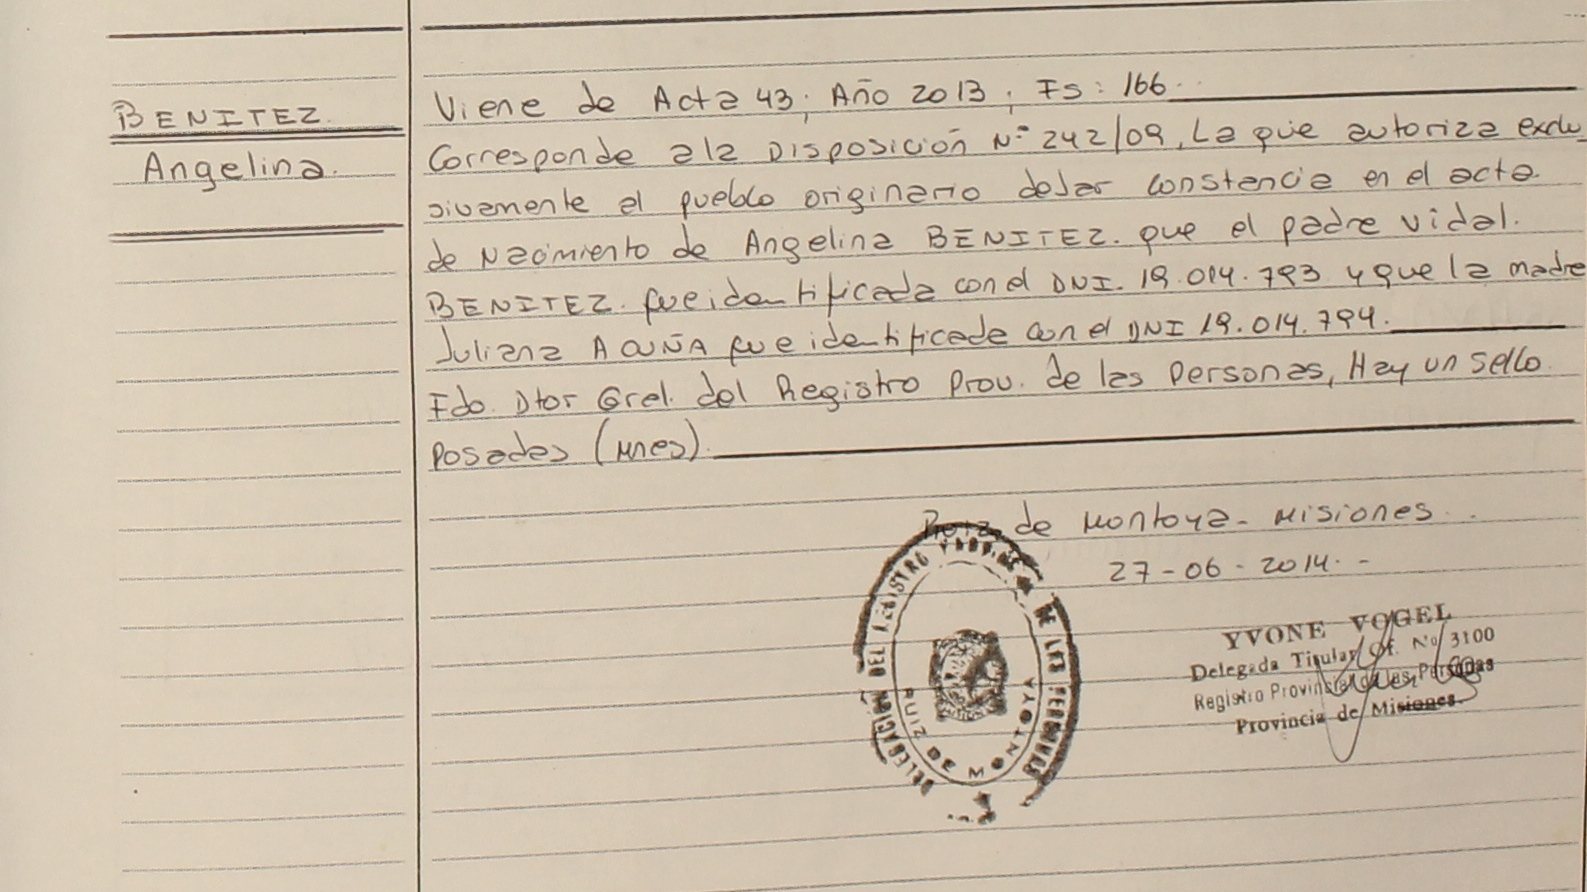 BENITEZ.
Angelina.
Viene de Acta 43; Año 2013; Fs: 166.
Corresponde a la Disposición Nº 242/09, La que autoriza exclu
sivamente al pueblo originario dejar constancia en el acta
de Nacimiento de Angelina BENITEZ. que el padre Vidal.
BENITEZ. fue identificada con el DNI. 19.014.793 y que la madre
Juliana ACUÑA fue identificada con el DNI 19.014.794.
Fdo. Dtor Gral. del Registro Prov. de las Personas, Hay un sello
Posadas (Mnes).
de Montoya - Misiones.
27-06-2014.-
DELEGACIÓN DEL REGISTRO PROVINCIAL DE LAS PERSONAS
RUIZ DE MONTOYA
YVONE VOGEL
Delegada Titular Of. Nº 3100
Registro Provincial de las Personas
Provincia de Misiones